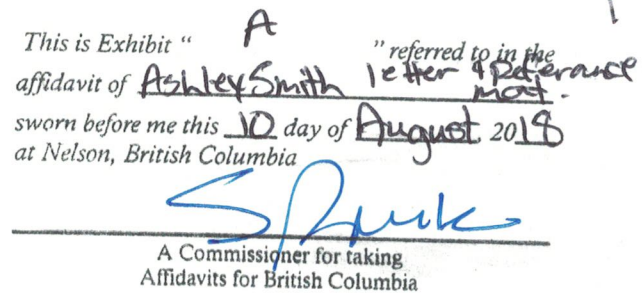 This is Exhibit “ A ” referred to in the
affidavit of Ashley Smith letter & Referance
mat.
sworn before me this 10 day of August 2018
at Nelson, British Columbia
A Commissioner for taking
Affidavits for British Columbia